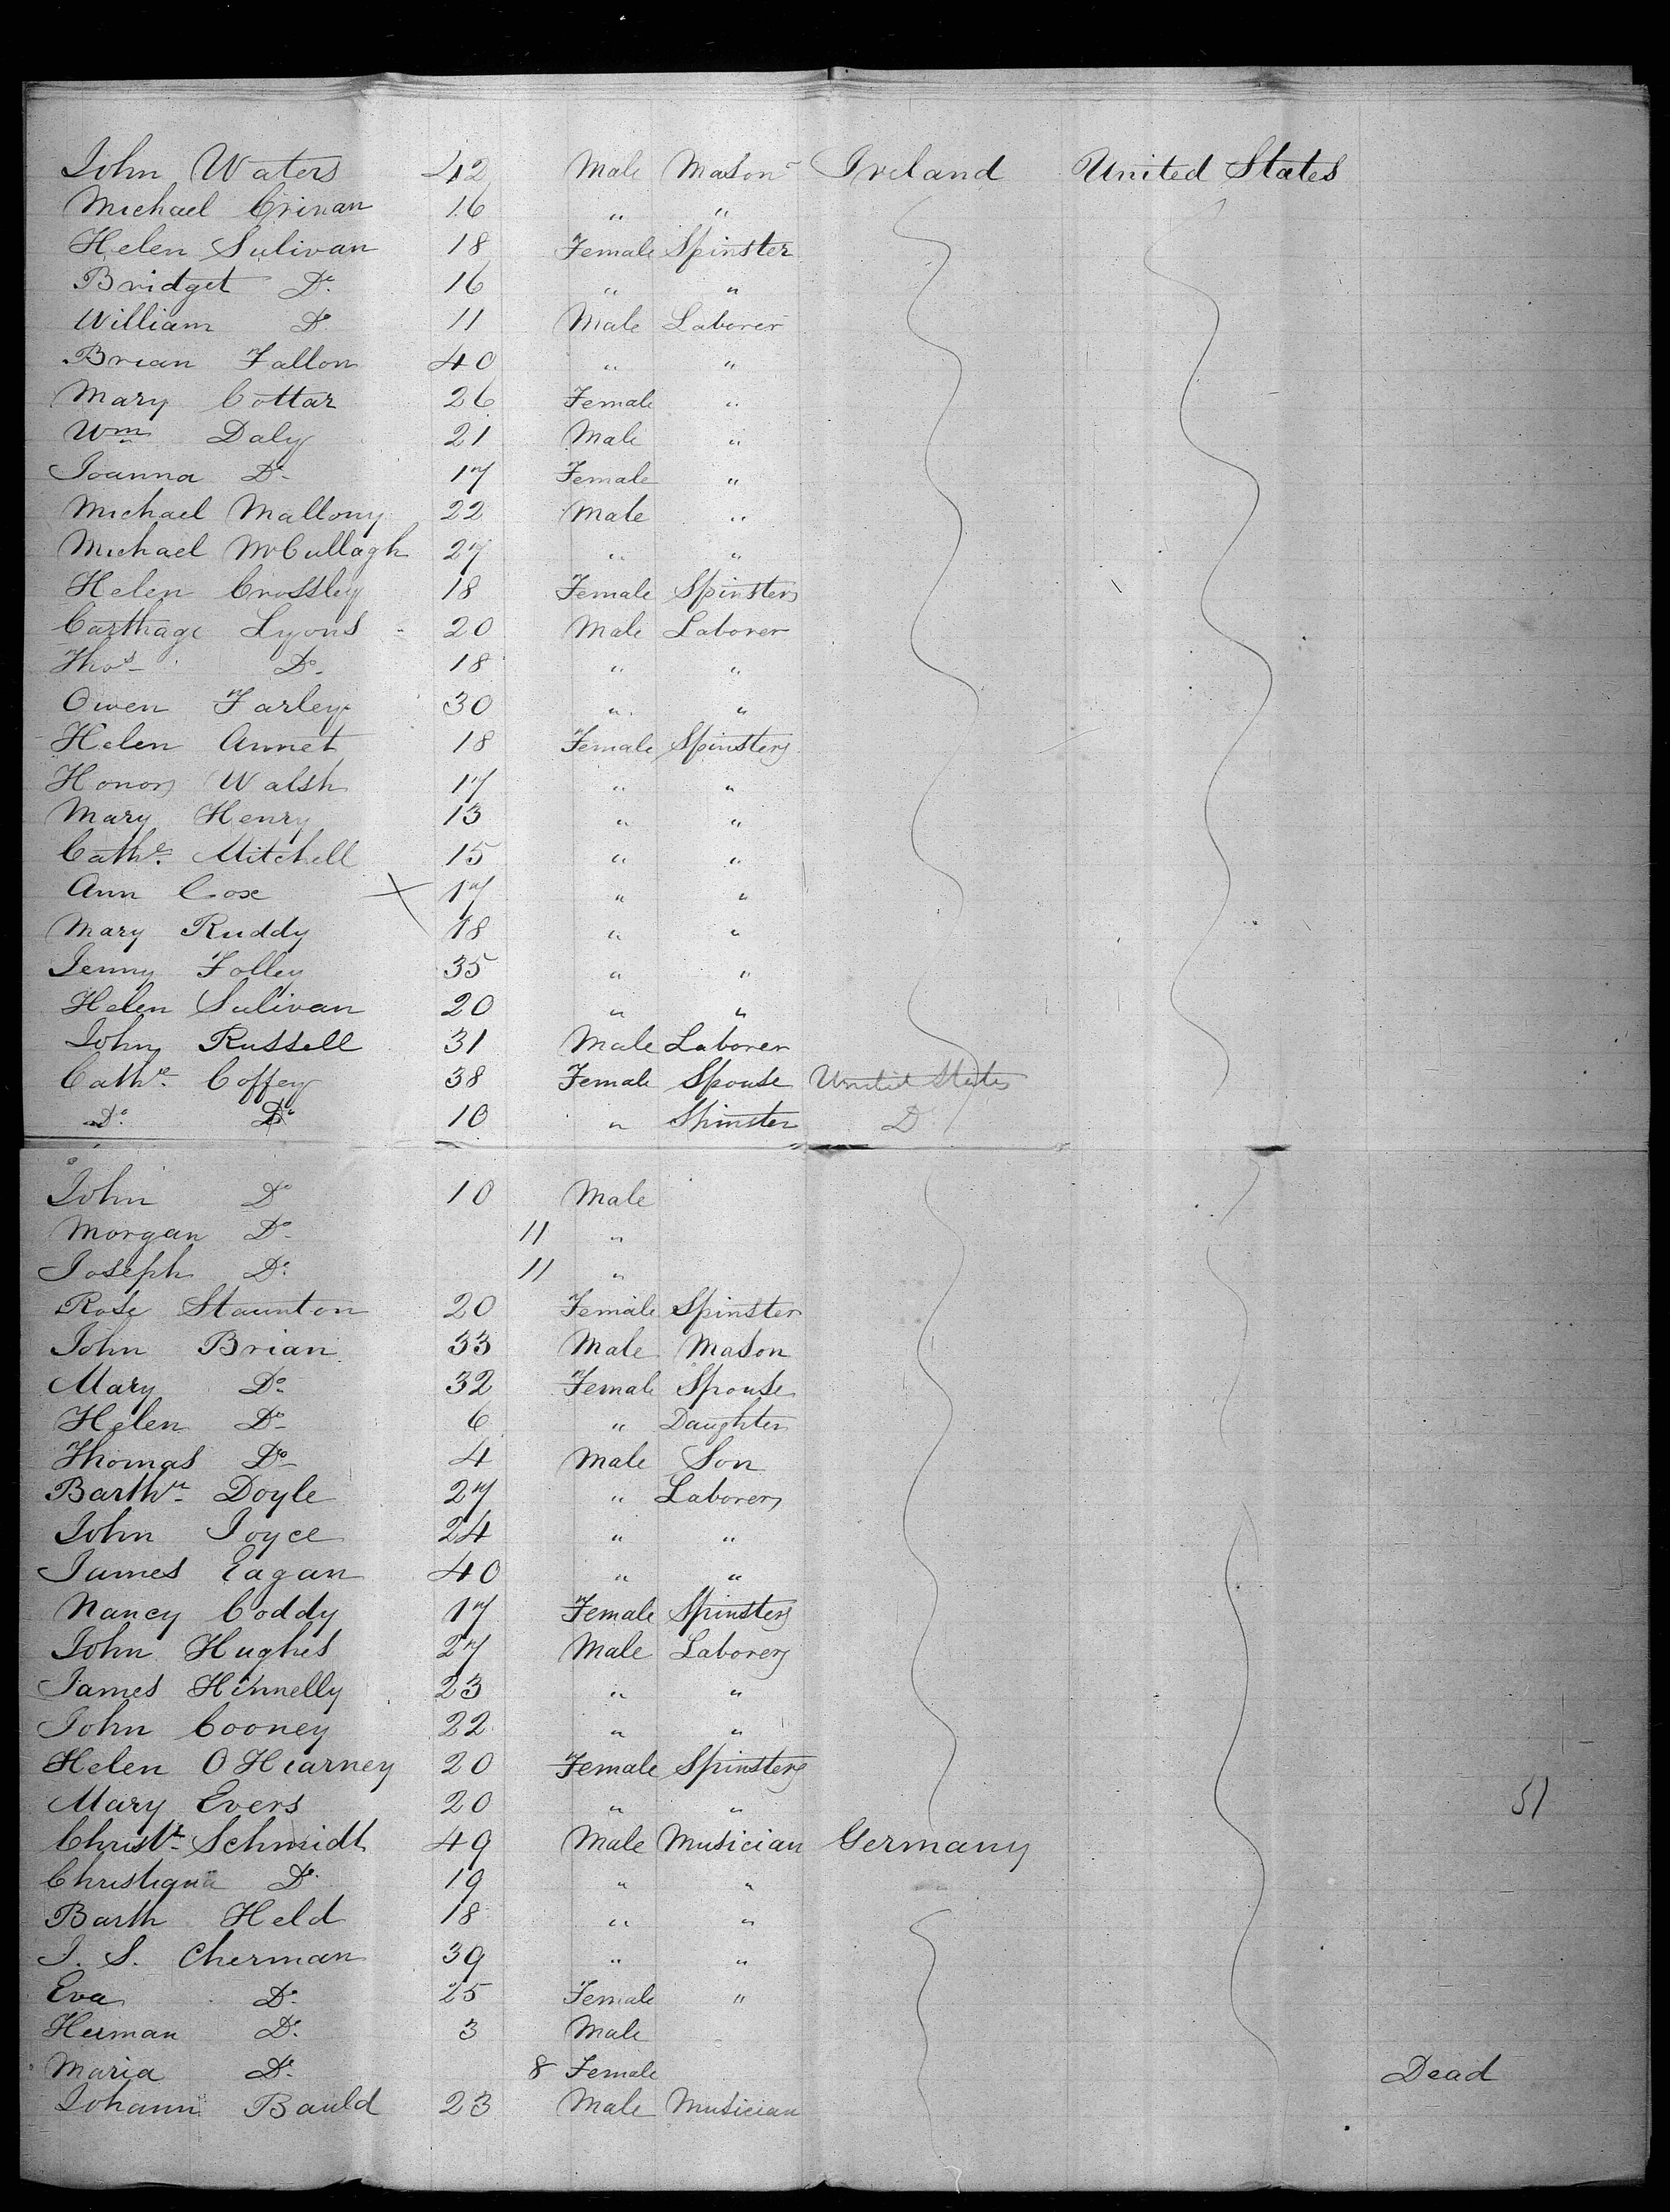 John Waters 42 Male Mason Ireland United States
Michael Crinan 16 " "
Helen Sulivan 18 Female Spinster
Bridget Do. 16 " "
William Do 11 Male Laborer
Brian Fallon 40 " "
Mary Cottar 26 Female "
Wm Daly 21 Male "
Joanna Do- 17 Female "
Michael Mallony 22 Male "
Michael McCullagh 27 " "
Helen Crossley 18 Female Spinster
Carthage Lyons - 20 Male Laborer
Thos- Do- 18 " "
Owen Farley 30 " "
Helen Annet 18 Female Spinster
Honor Walsh 17 " "
Mary Henry 13 " "
Cathe. Mitchell 15 " "
Ann Cox X 17 " "
Mary Ruddy 18 " "
Jenny Folley 35 " "
Helen Sulivan 20 " "
John Russell 31 Male Laborer
Cathe. Coffey 38 Female Spouse United States
Do. Do 10 " Spinster Do
John Do 10 Male
Morgan Do- 11 "
Joseph Do. 11 "
Rose Staunton 20 Female Spinster
John Brian 33 Male Mason
Mary Do- 32 Female Spouse
Helen Do- 6 " Daughter
Thomas Do- 4 Male Son
Barthw- Doyle 27 " Laborer
John Joyce 24 " "
James Eagan 40 " "
Nancy Coddy 17 Female Spinster
John Hughes 27 Male Laborer
James Hennelly 23 " "
John Cooney 22 " "
Helen O Hearney 20 Female Spinster
Mary Evers 20 " " 51
Christn- Schmidt 49 Male Musician Germany
Do. 19 " "
Barth Held 18 " "
J. S. Cherman 39 " "
Eva Do- 25 Female "
Herman Do. 3 Male
Maria Do- 8 Female Dead
Johann Bauld 23 Male Musician